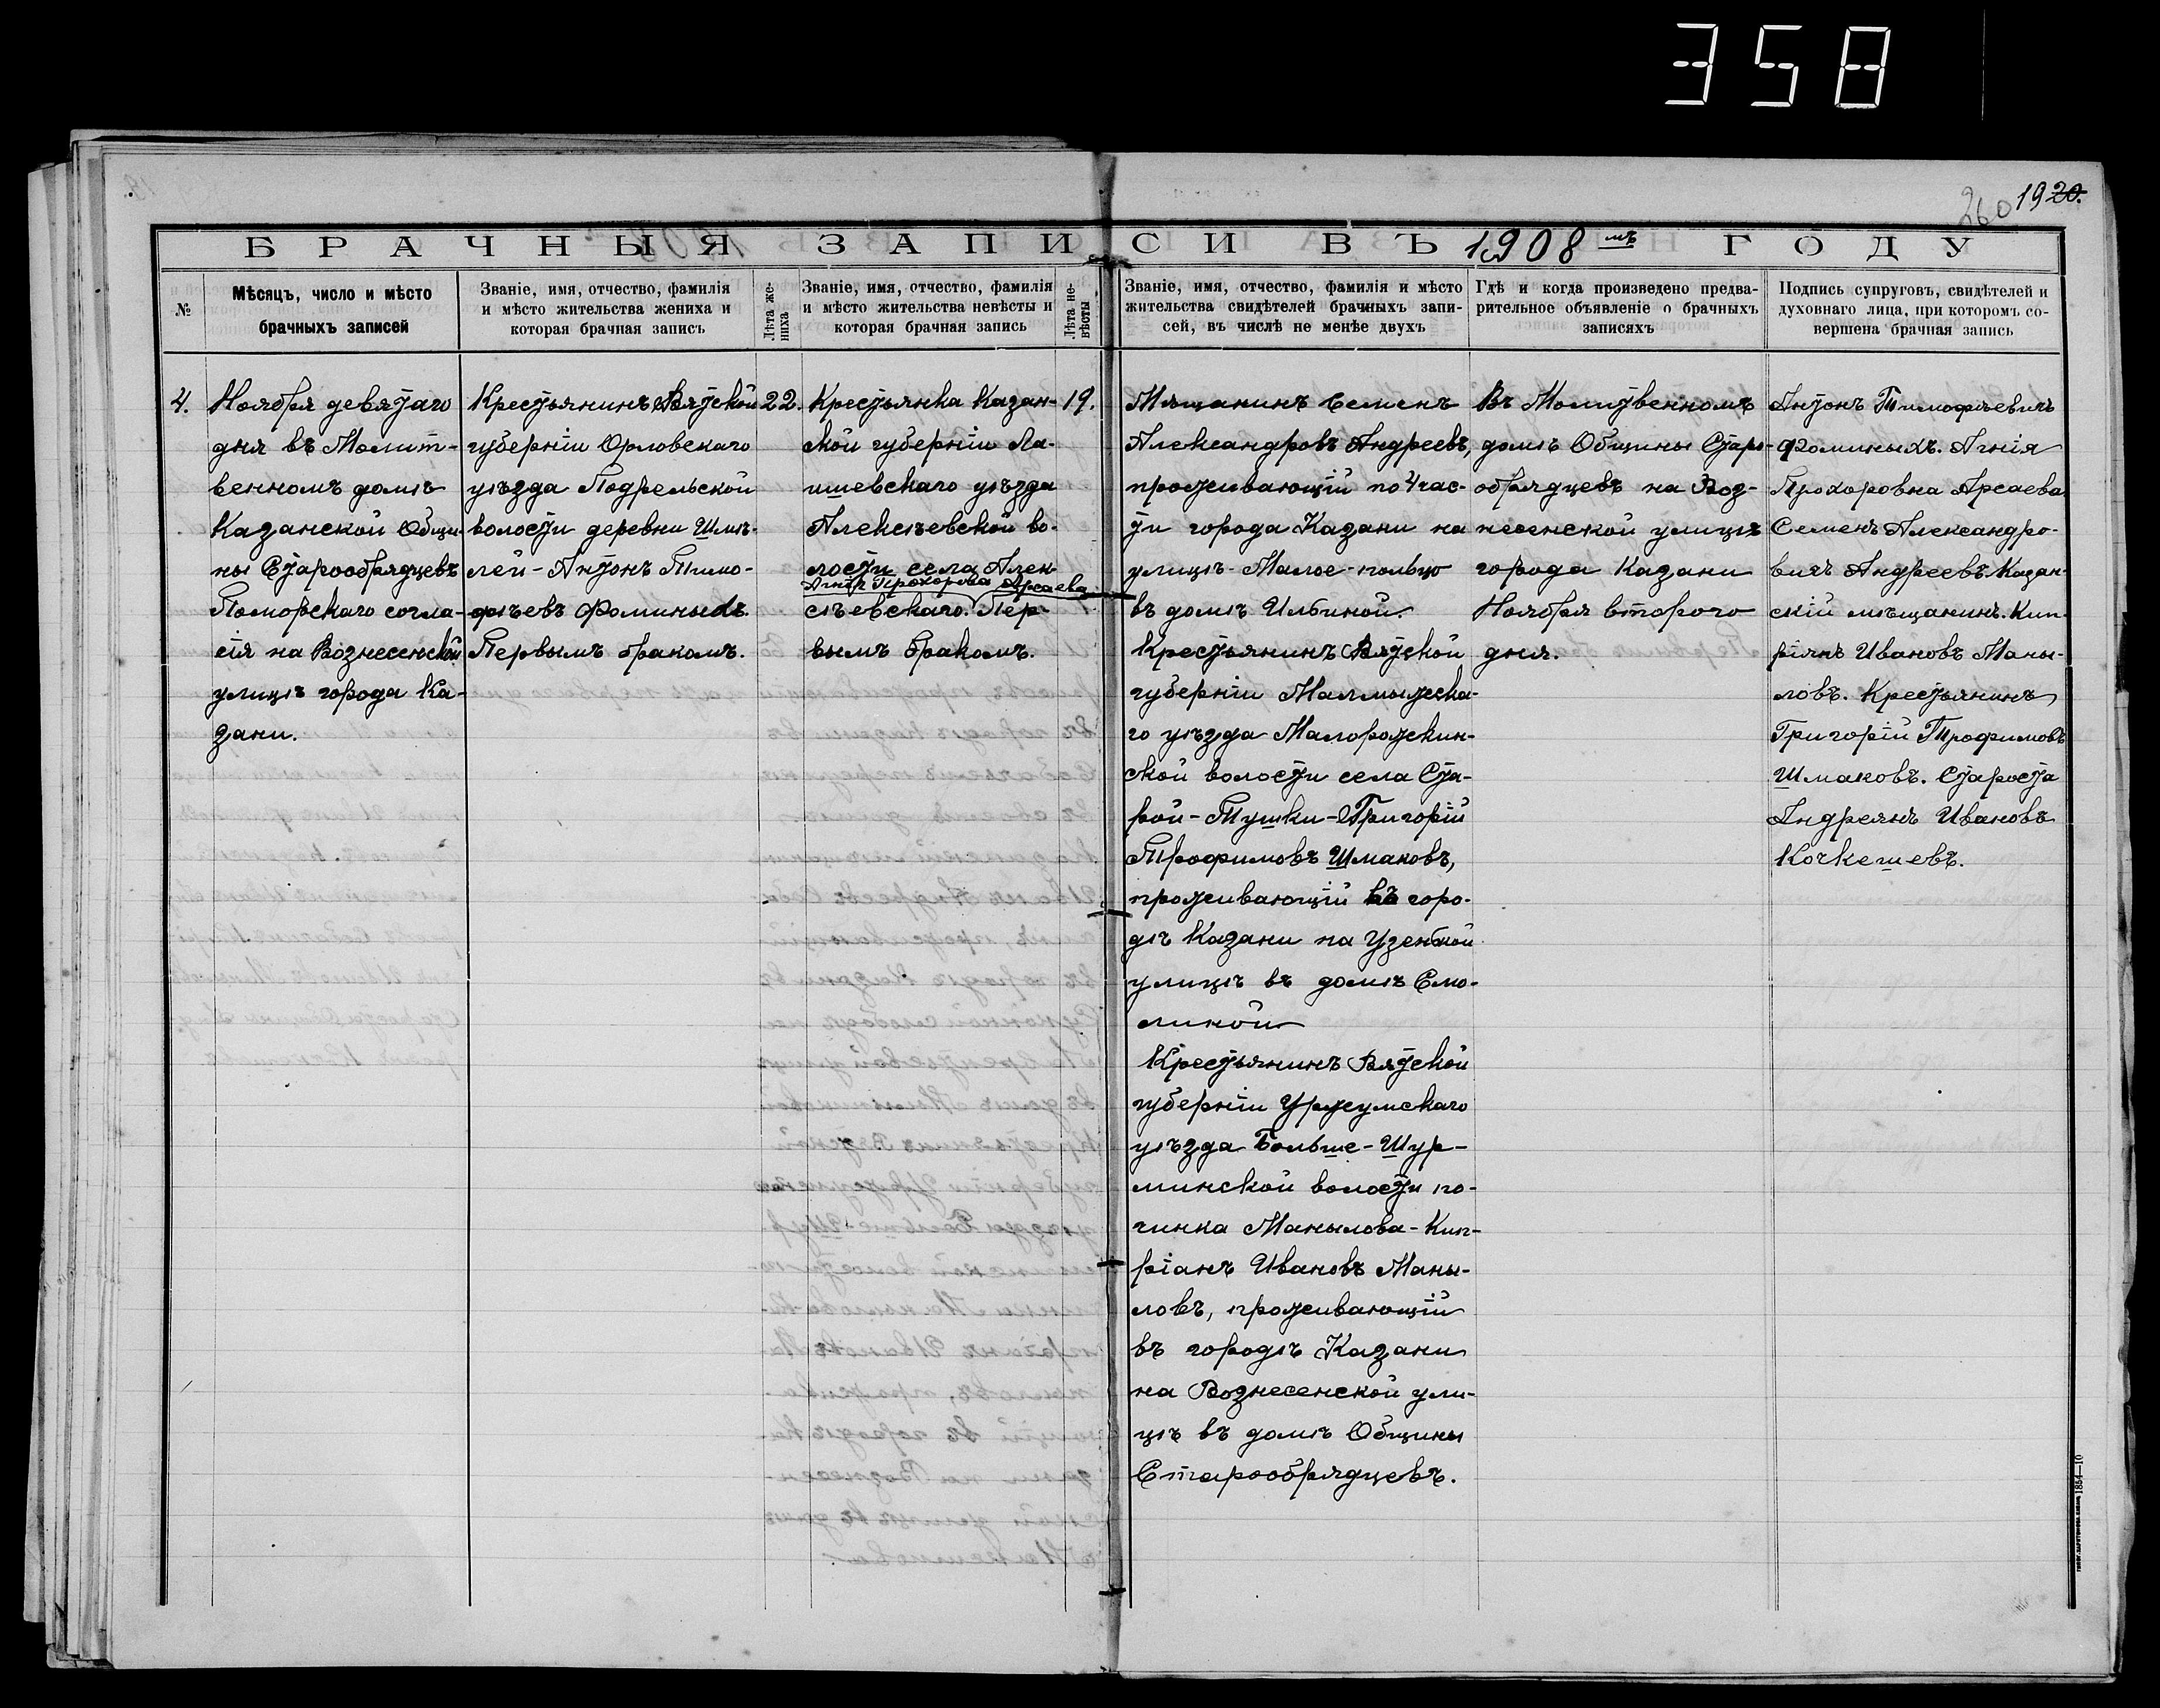 358
260
1920.
БРАЧНЫЯ ЗАПИСИ ВЪ 1908мъ ГОДУ
№
Мѣсяцъ, число и мѣсто
брачныхъ записей
Званіе, имя, отчество, фамилія
и мѣсто жительства жениха и
которая брачная запись
Лѣта же-
ниха
Званіе, имя, отчество, фамилія
и мѣсто жительства невѣсты и
которая брачная запись
Лѣта не-
вѣсты
Званіе, имя, отчество, фамилія и мѣсто
жительства свидѣтелей брачныхъ запи-
сей, въ числѣ не менѣе двухъ
Гдѣ и когда произведено предва-
рительное объявленіе о брачныхъ
записяхъ
Подпись супруговъ, свидѣтелей и
духовнаго лица, при которомъ со-
вершена брачная запись
4.
Ноября девятаго
дня въ Молит-
венномъ домѣ
Казанской Общи-
ны Старообрядцевъ
Поморскаго согла-
сія на Вознесенской
улицѣ города Ка-
зани.
Крестьянинъ Вятской
губерніи Орловскаго
уѣзда Подрельской
волости деревни Шмѣ-
лей - Антонъ Тимо-
фѣевъ Фоминыхъ.
Первымъ бракомъ.
22.
Крестьянка Казан-
ской губерніи Ла-
ишевскаго уѣзда
Алексѣевской во-
лости села Алек-
Агнія Прохорова Арсаева
сѣевскаго. Пер-
вымъ бракомъ.
19.
Мѣщанинъ Семенъ
Александровъ Андреевъ,
проживающій по 4 час-
ти города Казани на
улицѣ - Малое - кольцо
въ домѣ Ильиной.
Крестьянинъ Вятской
губерніи Малмыжска-
го уѣзда Малорожкин-
ской волости села Ста-
рой - Тушки - Григорій
Трофимовъ Шмаковъ,
проживающій въ горо-
дѣ Казани на Узенькой
улицѣ въ домѣ Смо-
линой
Крестьянинъ Вятской
губерніи Уржумскаго
уѣзда Больше - Шур-
минской волости по-
чинка Манылова - Кип-
ріанъ Ивановъ Маны-
ловъ, проживающій
въ городѣ Казани
на Вознесенской ули-
цѣ въ домѣ Общины
Старообрядцевъ.
Въ Молитвенномъ
домѣ Общины Старо-
обрядцевъ на Воз-
несенской улицѣ
города Казани
Ноября второго
дня.
Антонъ Тимофѣевичъ
Фоминыхъ. Агнія
Прохоровна Арсаева
Семенъ Александро-
вичъ Андреевъ. Казан-
скій мѣщанинъ. Кип-
ріянъ Ивановъ Маны-
ловъ. Крестьянинъ
Григорій Трофимовъ
Шмаковъ. Староста
Андреянъ Ивановъ
Кочкешевъ.
1854—10